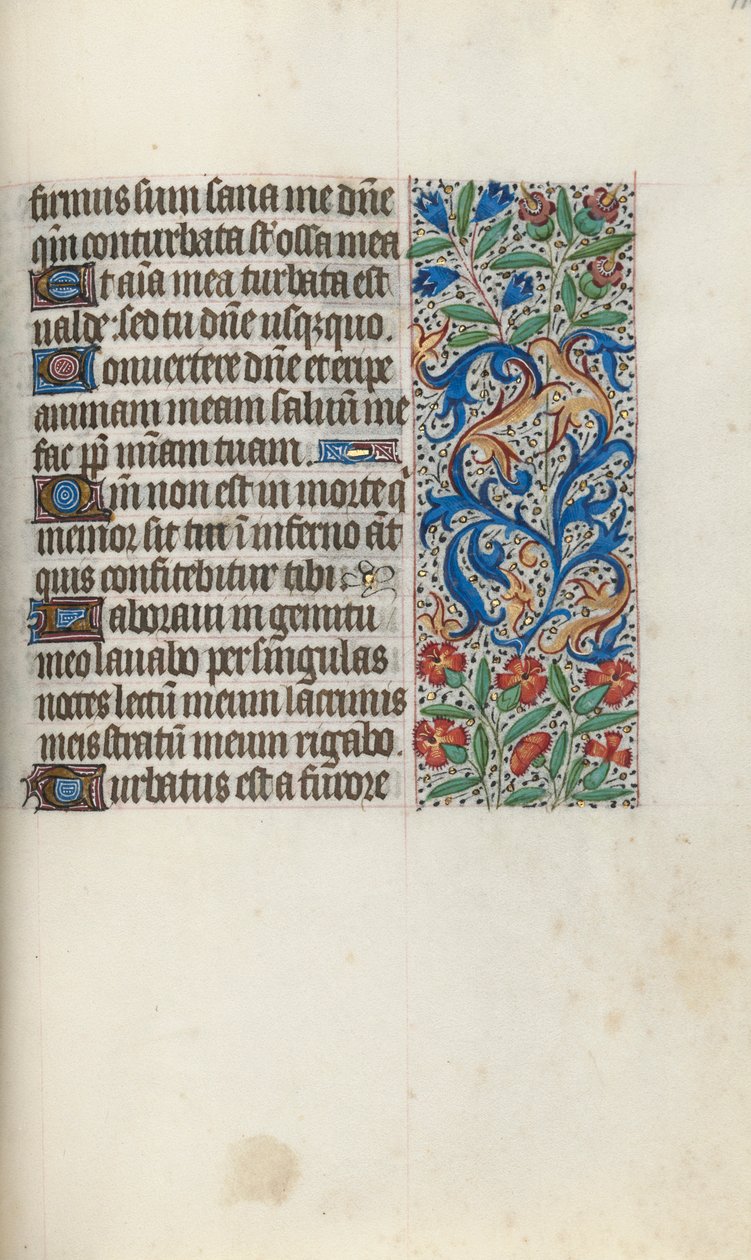 firmus sum sana me dn̄e
qm̄ conturbata st̄ ossa mea
Et aīa mea turbata est
ualde : sed tu dn̄e usqꝫ quo .
Conuertere dn̄e et eripe
animam meam saluū me
fac pp̄ mīam tuam .
Qm̄ non est in morte q̄
memor sit tui ī inferno aūt
quis confitebitur tibi .
Laboraui in gemitu
meo lauabo per singulas
noctes lectū meum lacrimis
meis stratū meum rigabo .
Turbatus est a furore